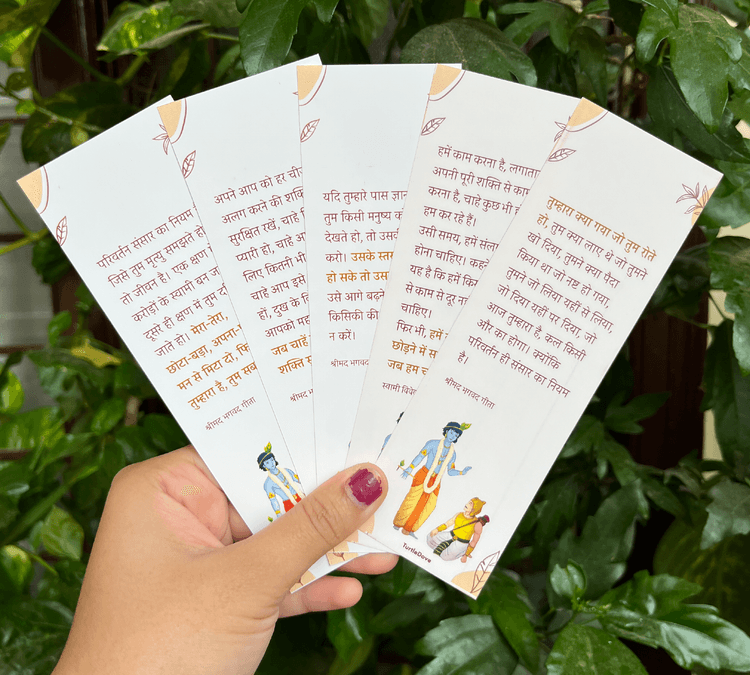 परिवर्तन संसार का नियम
जिसे तुम मृत्यु समझते हो
तो जीवन है। एक क्षण
करोड़ों के स्वामी बन ज
दूसरे ही क्षण में तुम द
जाते हो। मेरा-तेरा,
छोटा-बड़ा, अपना-
मन से मिटा दो, फि
तुम्हारा है, तुम सब
श्रीमद भगवद गीता
अपने आप को हर ची
अलग करने की शक्
सुरक्षित रखें, चाहे
प्यारी हो, चाहे अ
लिए कितनी भी
चाहे आप इसे
हो, दुख के
आपको मह
जब चाहें
शक्ति
यदि तुम्हारे पास ज्ञा
तुम किसी मनुष्य क
देखते हो, तो उस
करो। उसके स्त
हो सके तो उस
उसे आगे बढ़ने
किसिकी की
न करें।
श्रीमद भग
हमें काम करना है, लगाता
अपनी पूरी शक्ति से का
करना है, चाहे कुछ भी
हम कर रहे हैं।
उसी समय, हमें संल
होना चाहिए। कह
यह है कि हमें कि
से काम से दूर न
चाहिए।
फिर भी, हमें
छोड़ने में स
जब हम च
स्वामी विवे
तुम्हारा क्या गया जो तुम रोते
हो, तुम क्या लाए थे जो तुमने
खो दिया, तुमने क्या पैदा
किया था जो नष्ट हो गया,
तुमने जो लिया यहीं से लिया,
जो दिया यहीं पर दिया, जो
आज तुम्हारा है, कल किसी
और का होगा। क्योंकि
परिवर्तन ही संसार का नियम
है।
श्रीमद भगवद गीता
TurtleDove